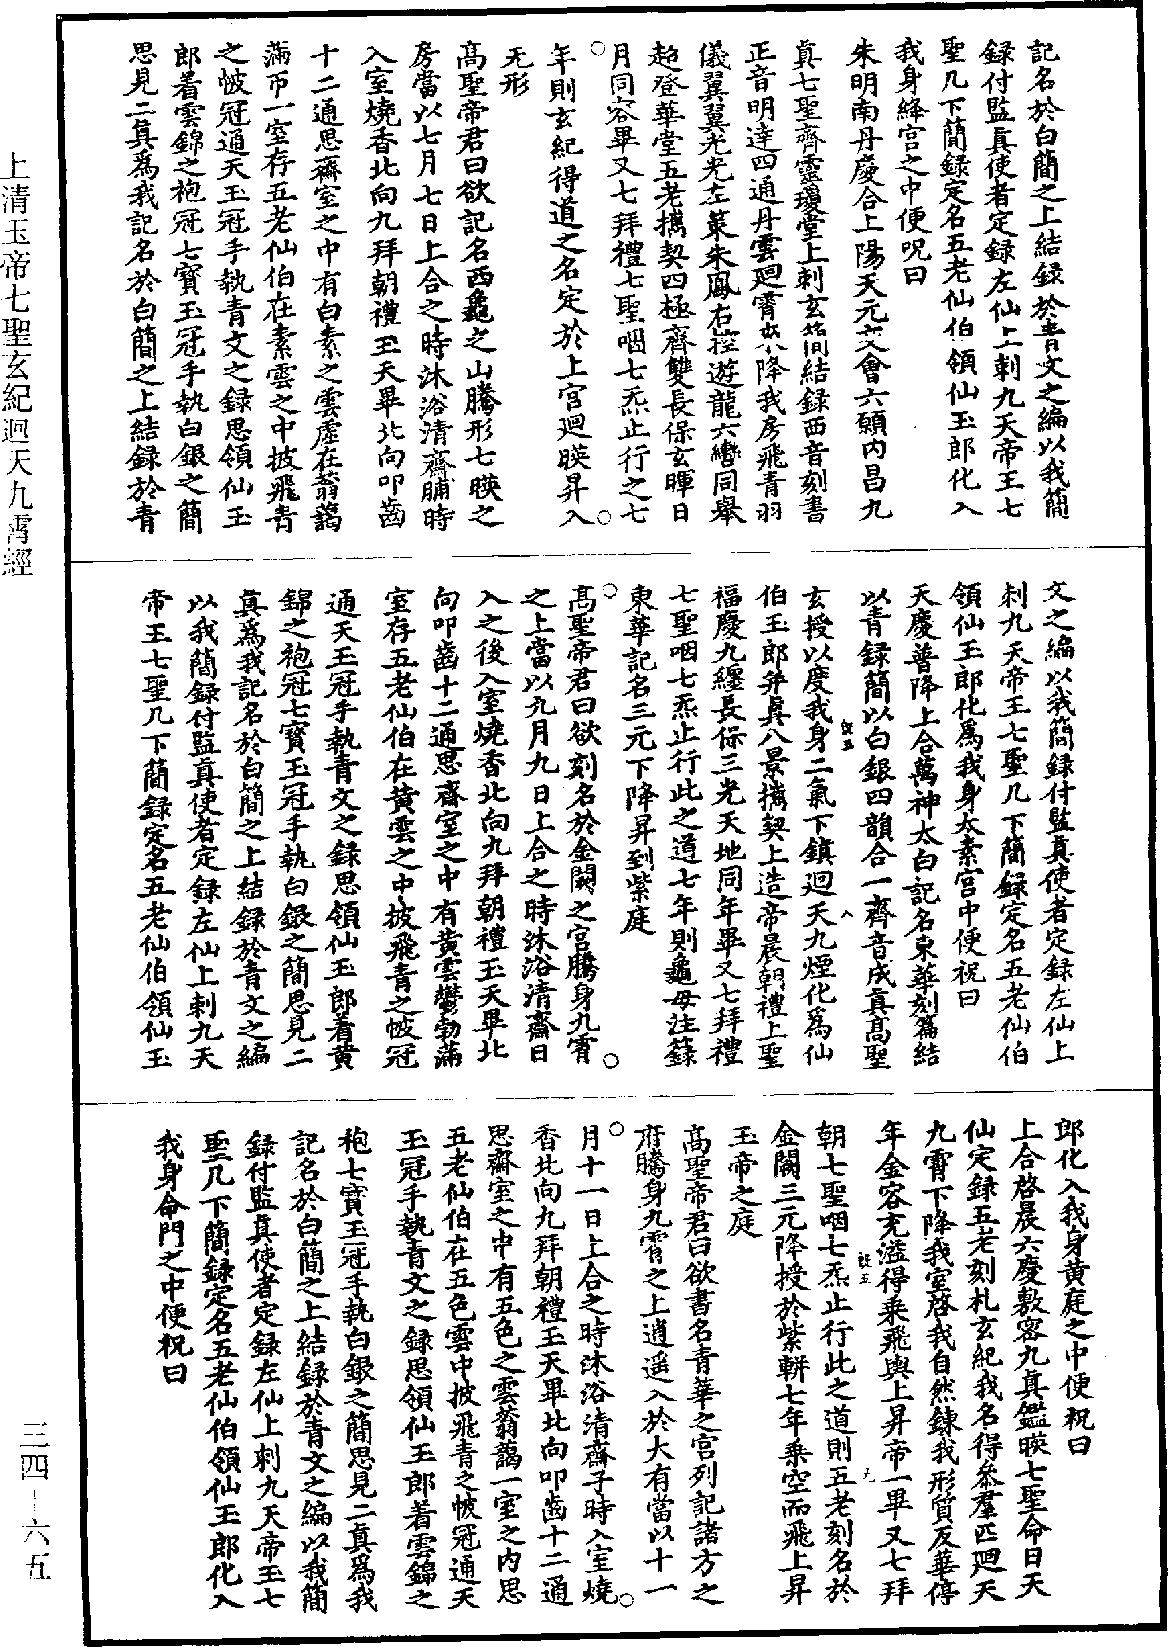 記名於白簡之上結録於青文之編以我簡
録付監真使者定録左仙上刺九天帝王七
聖几下簡録定名五老仙伯領仙玉郎化入
我身絳宮之中便呪曰
朱明南丹慶合上陽天元交會六願内昌九
真七聖齊靈瓊堂上刺玄簡結録西音刻書
正音明達四通丹雲廻霄來降我房飛青羽
儀翼翼光光左策朱鳳右控遊龍六轡同舉
超登華堂五老攜契四極齊雙長保玄暉日
月同容畢又七拜禮七聖咽七炁止行之七
年則玄紀得道之名定於上宮廻暎昇入
无形
高聖帝君曰欲記名西龜之山騰形七暎之
房當以七月七日上合之時沐浴清齋晡時
入室燒香北向九拜朝禮玉天畢北向叩齒
十二通思齋室之中有白素之雲虛在蓊藹
滿帀一室存五老仙伯在素雲之中披飛青
之帔冠通天玉冠手執青文之録思領仙玉
郎着雲錦之袍冠七寶玉冠手執白銀之簡
思見二真爲我記名於白簡之上結録於青
文之編以我簡録付監真使者定録左仙上
刺九天帝王七聖几下簡録定名五老仙伯
領仙玉郎化爲我身太素宮中便祝曰
天慶普降上合萬神太白記名東華刻篇結
以青録簡以白銀四韻合一齊音成真高聖
玄授以度我身二氣下鎮廻天九煙化爲仙
伯玉郎并真八景攜契上造帝晨朝禮上聖
福慶九纏長保三光天地同年畢又七拜禮
七聖咽七炁止行此之道七年則龜母注籙
東華記名三元下降昇到紫庭
高聖帝君曰欲刻名於金闕之宮騰身九霄
之上當以九月九日上合之時沐浴清齋日
入之後入室燒香北向九拜朝禮玉天畢北
向叩齒十二通思齋室之中有黄雲鬱勃滿
室存五老仙伯在黄雲之中披飛青之帔冠
通天玉冠手執青文之録思領仙玉郎着黄
錦之袍冠七寶玉冠手執白銀之簡思見二
真爲我記名於白簡之上結録於青文之編
以我簡録付監真使者定録左仙上刺九天
帝王七聖几下簡録定名五老仙伯領仙玉
郎化入我身黄庭之中便祝曰
上合啓晨六慶敷窓九真鑑暎七聖命日天
仙定録五老刻札玄紀我名得叅羣匹廻天
九霄下降我室啓我自然錬我形質反華停
年金容充溢得乗飛輿上昇帝一畢又七拜
朝七聖咽七炁止行此之道則五老刻名於
金闕三元降授於紫軿七年乗空而飛上昇
玉帝之庭
高聖帝君曰欲書名青華之宮列記諸方之
府騰身九霄之上逍遥入於大有當以十一
月十一日上合之時沐浴清齋子時入室燒
香北向九拜朝禮玉天畢北向叩齒十二通
思齋室之中有五色之雲蓊藹一室之内思
五老仙伯在五色雲中披飛青之帔冠通天
玉冠手執青文之録思領仙玉郎着雲錦之
袍七寶玉冠手執白銀之簡思見二真爲我
記名於白簡之上結録於青文之編以我簡
録付監真使者定録左仙上刺九天帝王七
聖几下簡録定名五老仙伯領仙玉郎化入
我身命門之中便祝曰
上清玉帝七聖玄紀迴天九霄經
三四—六五